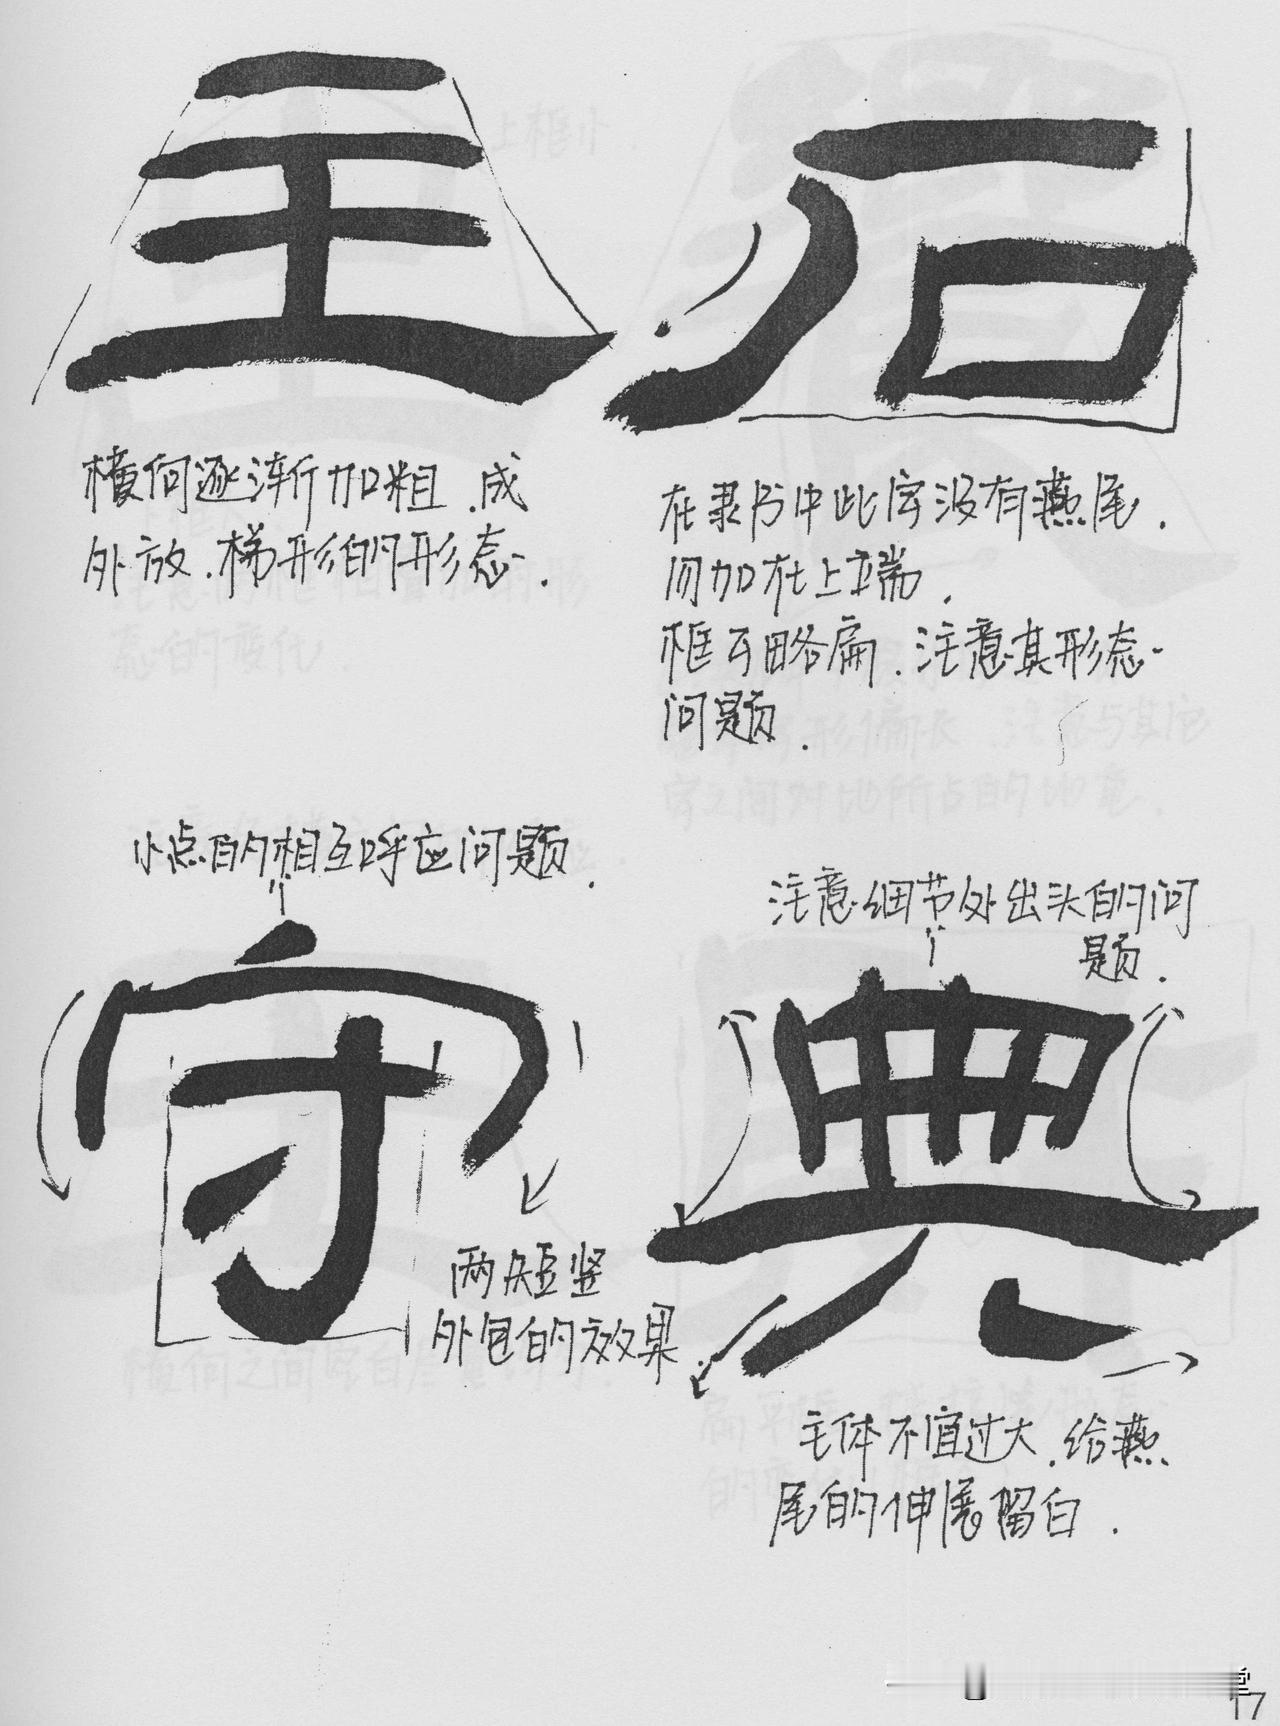 主 石
横向逐渐加粗.成
外放.梯形的形态.
在隶书中此字没有燕尾.
勿加在上端.
框可略扁.注意其形态
问题.
小点的相互呼应问题.
守
两短竖
外包的效果.
注意细节处出头的问
题.
典
主体不宜过大.给燕
尾的伸展留白.
17